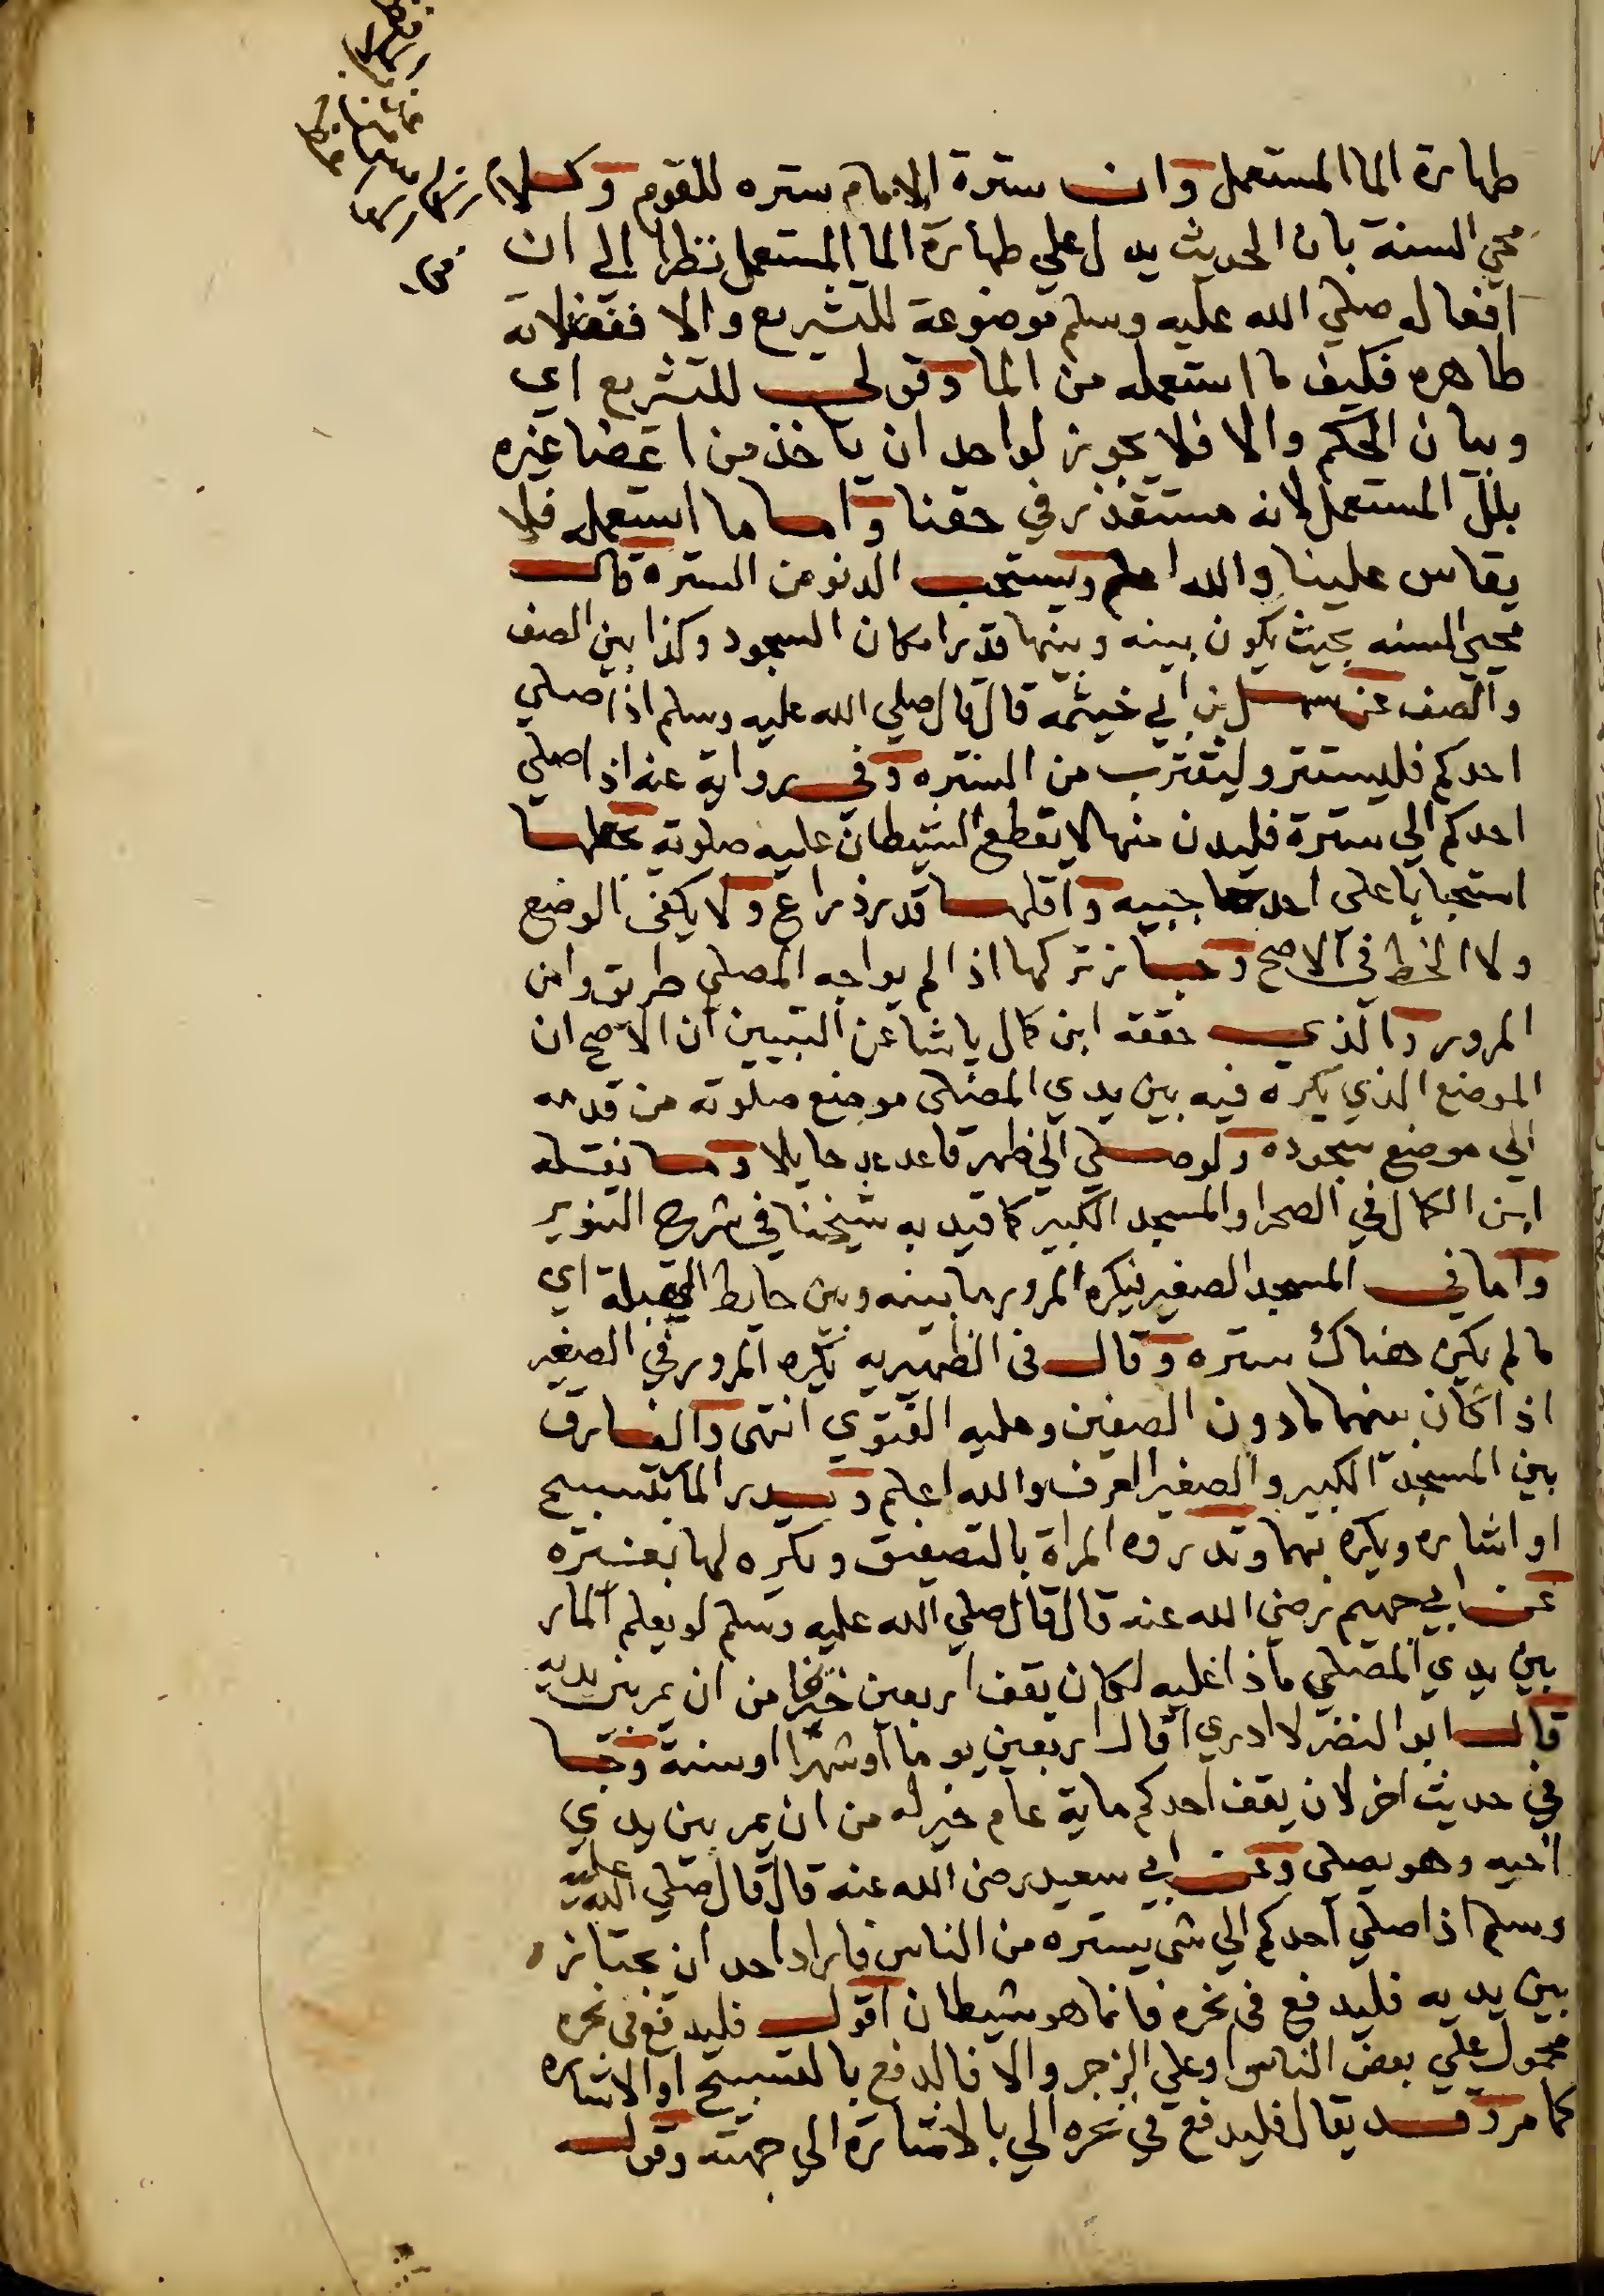 طهارة الما المستعمل وان سترة الامام ستره للقوم وكلام
محي السنة بان الحديث يدل علي طهارة الما المستعمل نظرا الي ان
افعاله صلي الله عليه وسلم موضوعة للتشريع والا ففضلاته
طاهره فكيف ما استعمله من الما وقولي للتشريع اي
وبيان الحكم والا فلا يجوز لواحد ان ياخذ من اعضا غيره
بلل المستعمل لانه مستقذر في حقنا واما ما استعمله فلا
يقاس علينا والله اعلم ويستحب الدنو من السترة قال
محيي السنه بحيث يكون بينه وبينها قدر امكان السجود وكذا بين الصف
والصف عن سهل بن ابي خيثمه قال قال صلي الله عليه وسلم اذا صلي
احدكم فليستتر وليقترب من السترة وفي رواية عنه اذا صلي
احدكم الي سترة فليدن منها لا يقطع الشيطان عليه صلوته يجعلها
استحبابا علي احد حاجبيه واقلها قدر ذراع ولا يكفي الوضع
ولا الخط في الاصح وجاز تركها اذا لم يواجه المصلي طريق وامن
المرور والذي حققه ابن كمال باشا عن التبيين ان الاصح ان
الموضع الذي يكره فيه بين يدي المصلي موضع صلوته من قدمه
الي موضع سجوده ولو صلي الي ظهر قاعد عد حايلا وما نقله
ابن الكمال في الصحرا والمسجد الكبير كما قيد به شيخنا في شرح التنوير
واما في المسجد الصغير فيكره المرور ما بينه وبين حايط القبلة اي
ما لم يكن هناك ستره وقال في الظهيريه يكره المرور في الصغير
اذا كان بينهما مادون الصفين وعليه الفتوي انتهي والفارق
بين المسجد الكبير والصغير العرف والله اعلم ويدر المار بتسبيح
او اشاره ويكره بهما وتدروه المراة بالتصفيق ويكره لها بغيره
عن ابي جهيم رضي الله عنه قال قال صلي الله عليه وسلم لو يعلم المار
بين يدي المصلي ماذا عليه لكان يقف اربعين خيرا من ان يمر بين يديه
قال ابو النضر لا ادري اقال اربعين يوما او شهرا او سنة وجا
في حديث اخر لان يقف احدكم ماية عام خير له من ان يمر بين يدي
اخيه وهو يصلي وعن ابي سعيد رضي الله عنه قال قال صلي الله عليه
وسلم اذا صلي احدكم الي شي يستره من الناس فاراد احد ان يجتاز
بين يديه فليدفع في نحره فانما هو شيطان اقول فليدفع في نحره
محمول علي بعض الناس او علي الزجر والا فالدفع بالتسبيح او الاشاره
كما مر وقد يقال فليدفع في نحره الي بالاشارة الي جهته وقوله